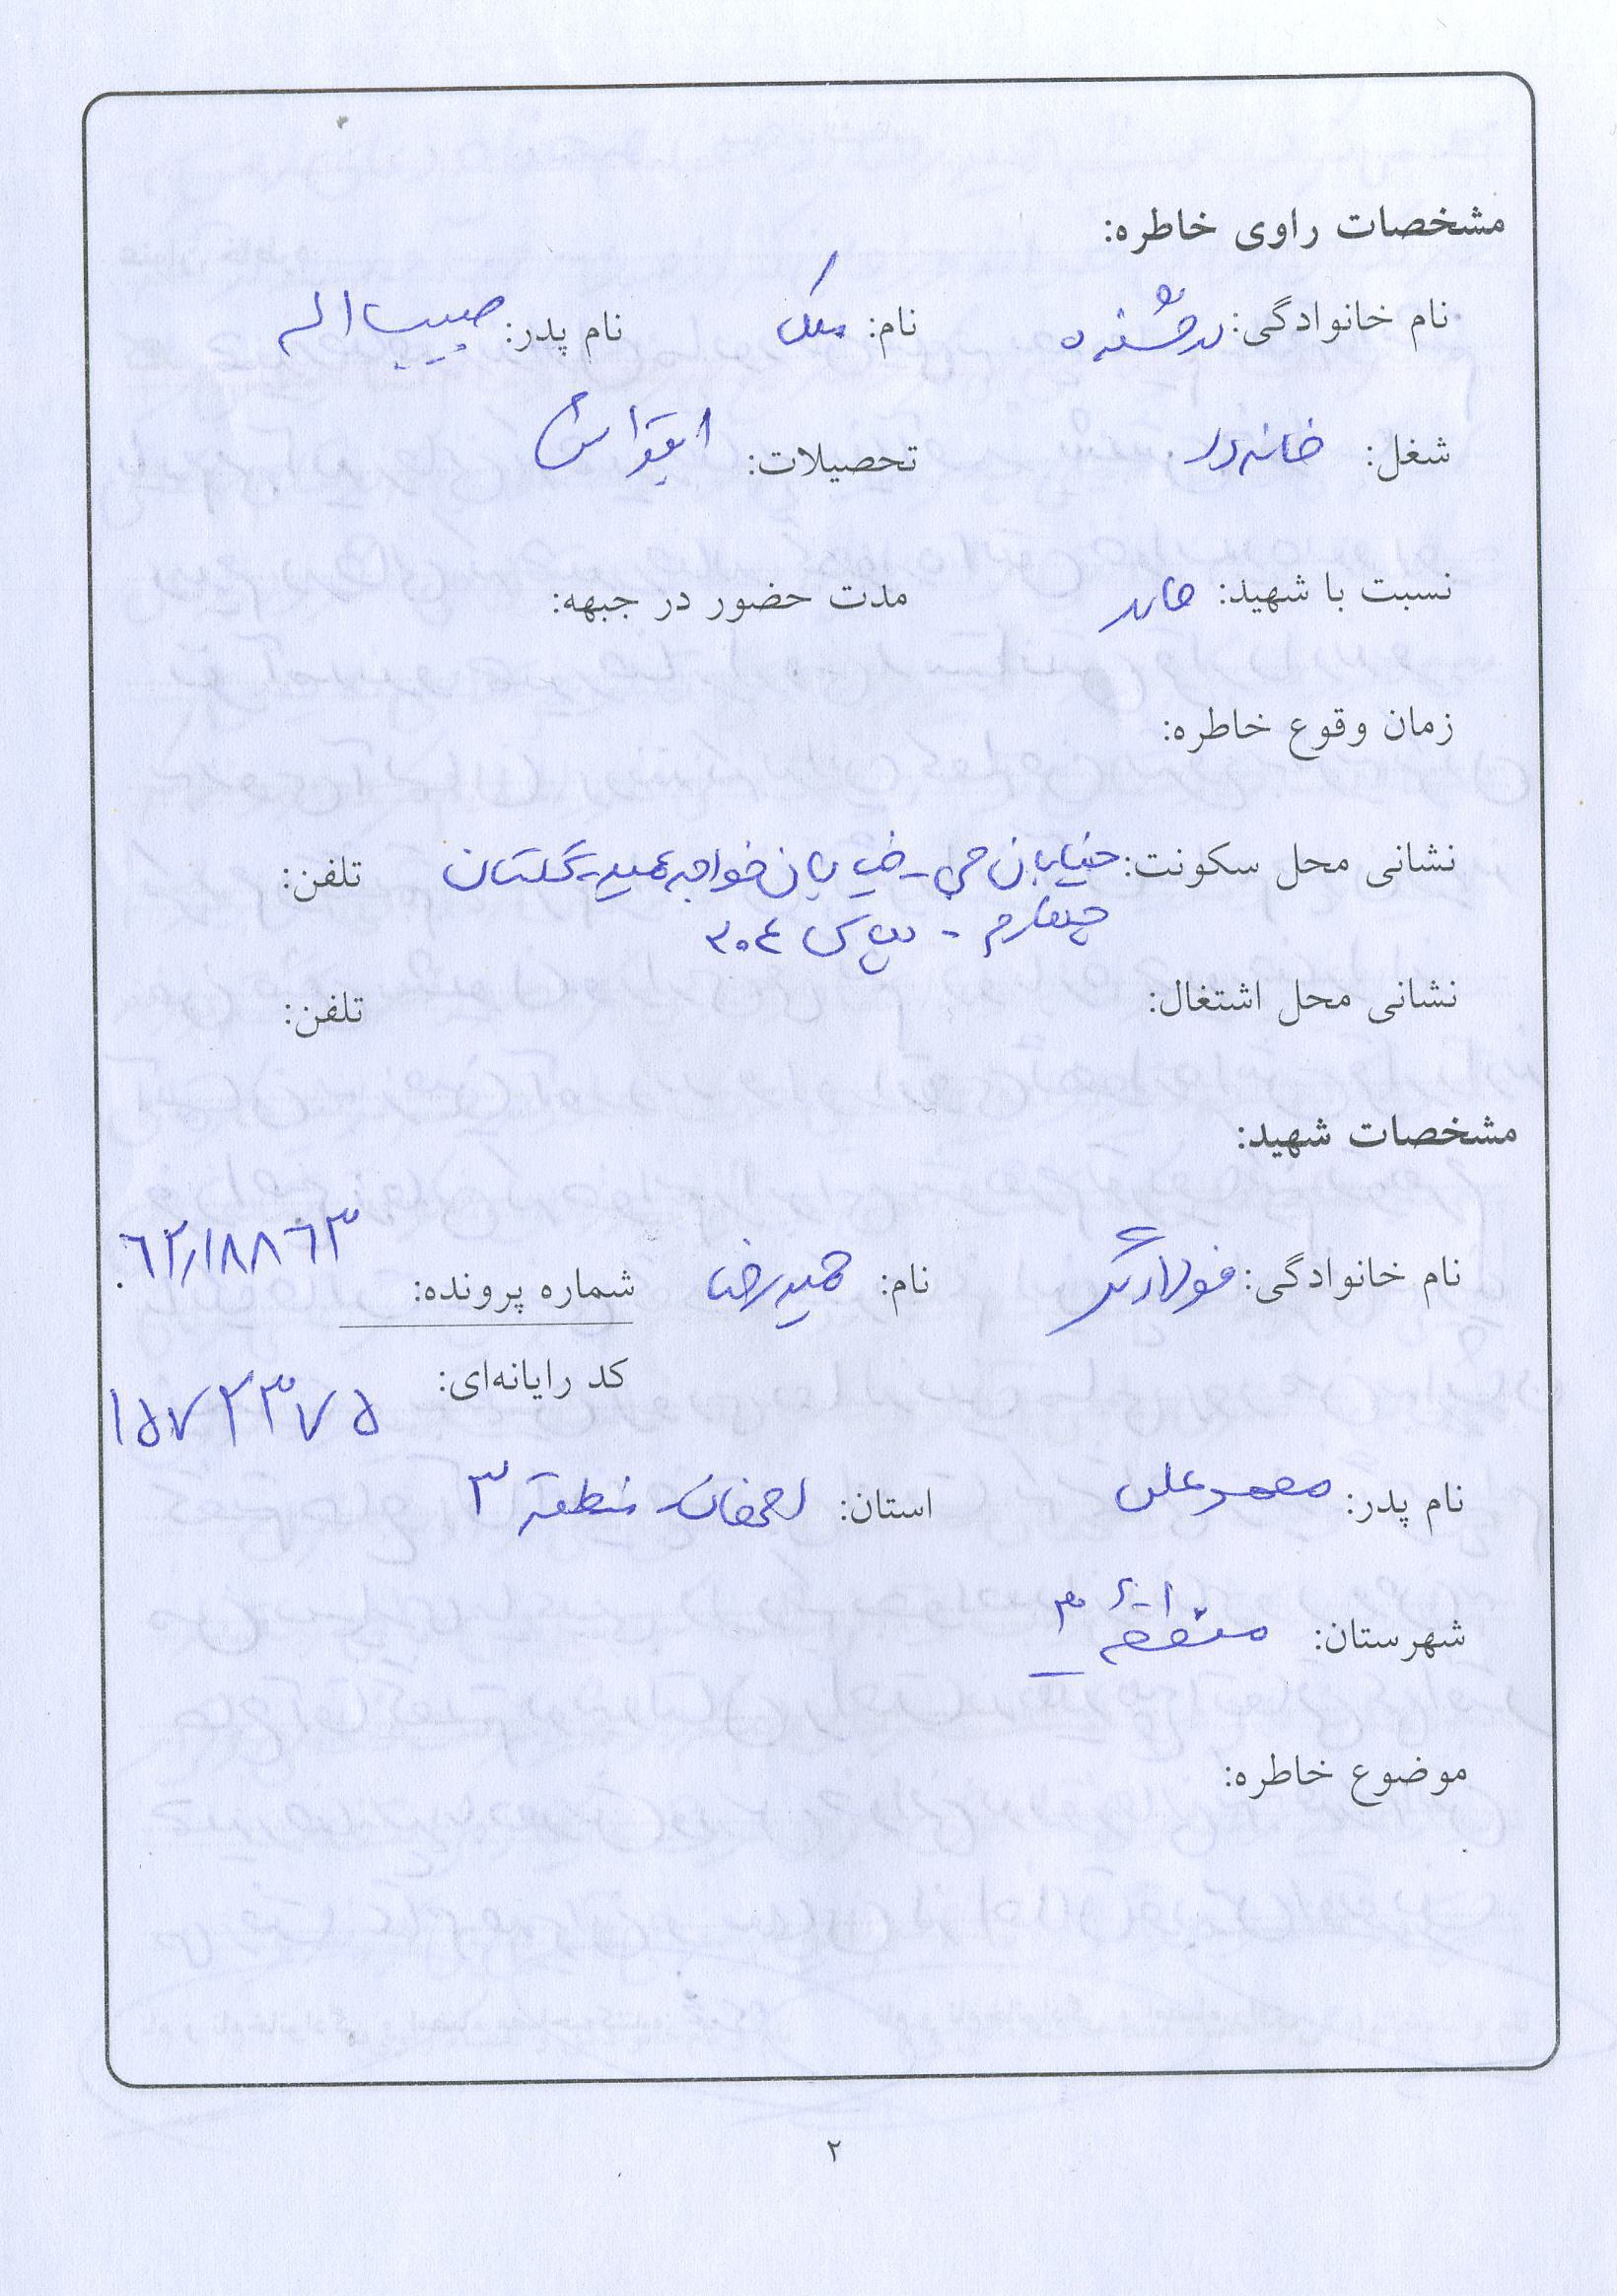 مشخصات راوی خاطره:
نام خانوادگی: درخشنده نام: ملک نام پدر: حبیب اله
شغل: خانه‌دار تحصیلات: ابتدائی
نسبت با شهید: مادر مدت حضور در جبهه:
زمان وقوع خاطره:
نشانی محل سکونت: خیابان جی - خیابان خواجه عمید - گلستان تلفن:
چهارم - پلاک ۳۰۴
نشانی محل اشتغال: تلفن:
مشخصات شهید:
نام خانوادگی: فولادگر نام: حمیدرضا شماره پرونده: ۶۲/۱۸۸۶۳
کد رایانه‌ای: ۱۵۷۲۳۷۵
نام پدر: محمدعلی استان: اصفهان منطقه ۳
شهرستان: منطقه ۳
موضوع خاطره:
۲